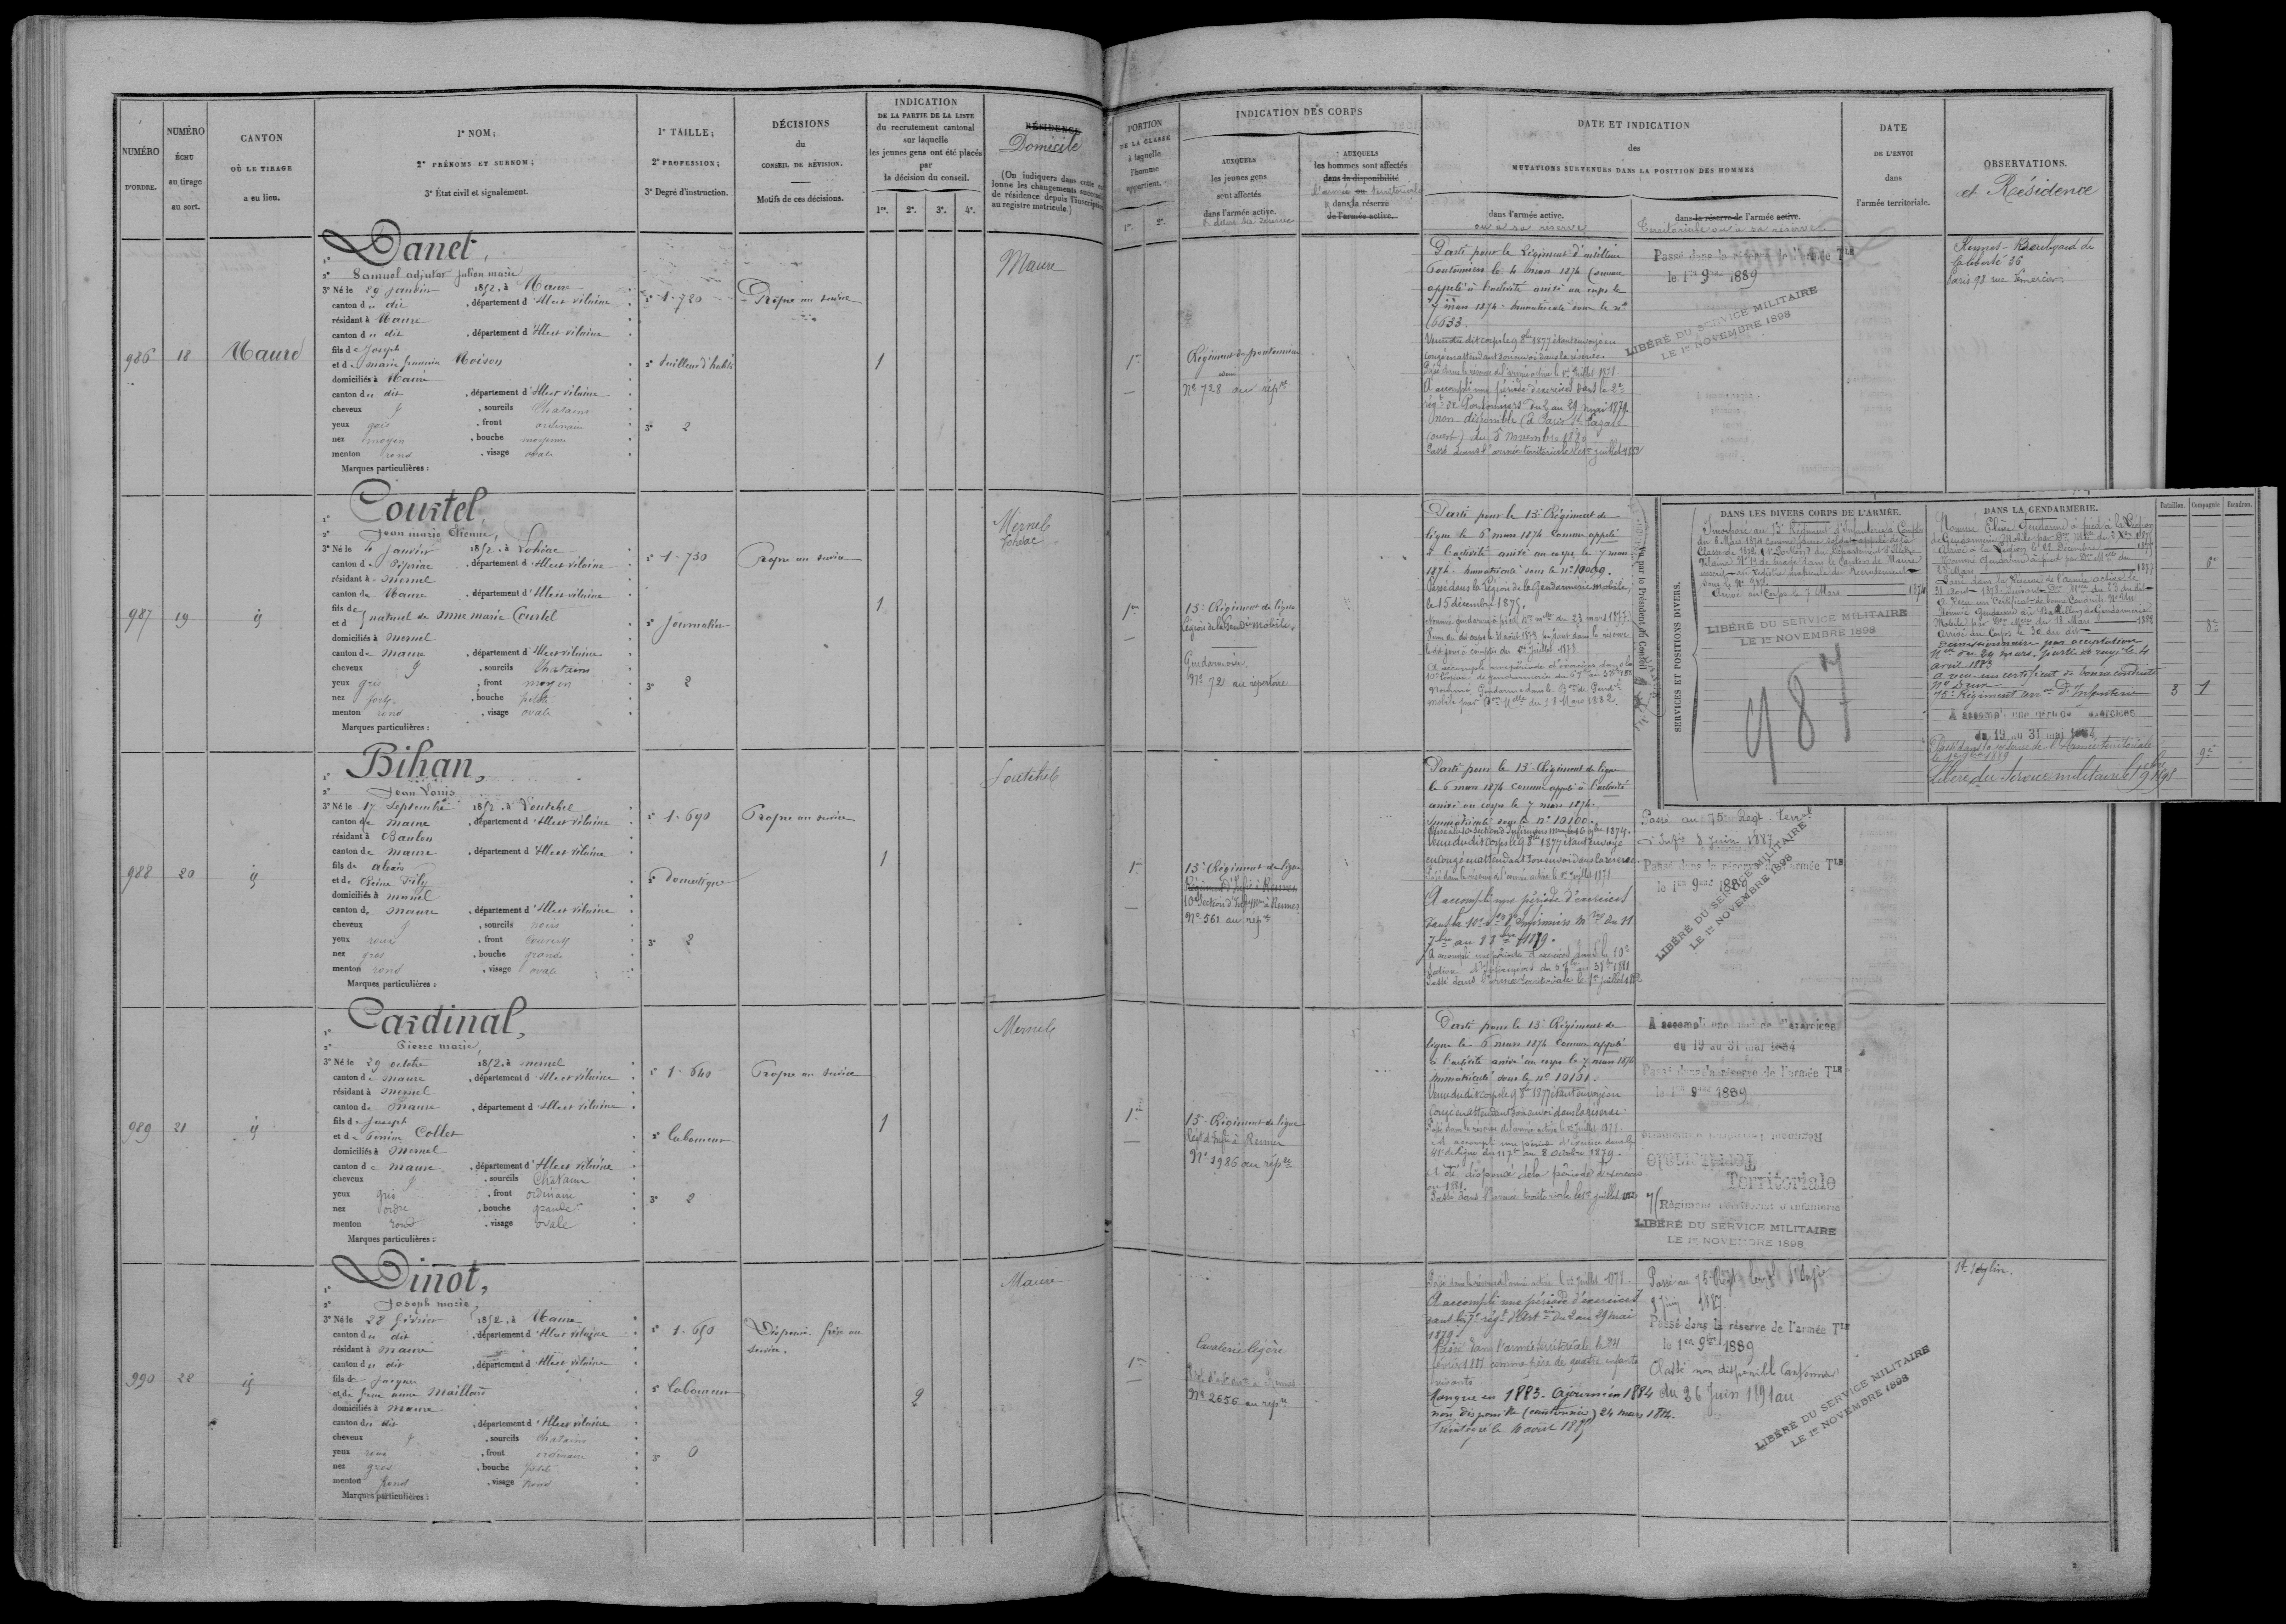 NUMÉRO
D'ORDRE.
NUMÉRO
ÉCHU
au tirage
au sort.
CANTON
OÙ LE TIRAGE
a eu lieu.
1° NOM;
2° PRÉNOMS ET SURNOM;
3° État civil et signalement.
1° TAILLE;
2° PROFESSION;
3° Degré d'instruction.
DÉCISIONS
du
CONSEIL DE RÉVISION.
Motifs de ces décisions.
INDICATION
DE LA PARTIE DE LA LISTE
du recrutement cantonal
sur laquelle
les jeunes gens ont été placés
par
la décision du conseil.
1re. 2e. 3e. 4e.
RÉSIDENCE
Domicile
(On indiquera dans cette
lonne les changements
de résidence depuis l'inscription
au registre matricule.)
PORTION
DE LA CLASSE
à laquelle
l'homme
appartient.
1re. 2e.
INDICATION DES CORPS
AUXQUELS
les jeunes gens
sont affectés
dans l'armée active.
AUXQUELS
les hommes sont affectés
dans la disponibilité
dans la réserve
de l'armée active.
DATE ET INDICATION
des
MUTATIONS SURVENUES DANS LA POSITION DES HOMMES
dans l'armée active.
ou à sa réserve
dans la réserve de l'armée active.
Territoriale ou à sa réserve
DATE
DE L'ENVOI
dans
l'armée territoriale.
OBSERVATIONS.
et Résidence
986
18
Maure
1° Danet,
2° Samuel adjutor julien marie
3° Né le 29 janvier 1852, à Maure
canton du dit, département d'Ille et vilaine
résidant à Maure
canton du dit, département d'Ille et vilaine
fils de Joseph
et de marie Moison
domiciliés à Maure
canton du dit, département d'Ille et vilaine
cheveux, sourcils Chatains
yeux gris, front ordinaire
nez moyen, bouche moyenne
menton rond, visage ovale
Marques particulières :
1° 1.720
2° tailleur d'habits
3° 2
Propre au service
1
Maure
1re
Régiment de pontonniers
N° 728 au répre
Parti pour le Régiment d'artillerie
Pontonniers le 4 mars 1874 Comme
appelé à l'activité arrivé au corps le
7 mars 1874. Immatriculé sous le n°
6633.
Venu du dit corps le 9 8bre 1877 étant envoyé en
congé en attendant son envoi dans la réserve.
Passé dans la réserve de l'armée active le 1er juillet 1878
A accompli une période d'exercices dans le 2e
régt de Pontonniers du 2 au 29 mai 1879.
non disponible (à Paris St Lazare
(ouest) du 5 novembre 1880
Passé dans l'armée territoriale le 1er juillet 1883
Passé dans la réserve de l'armée Tle
le 1er 9bre 1889
LIBÉRÉ DU SERVICE MILITAIRE
LE 1er NOVEMBRE 1898
Rennes - Boulevard de
la liberté 36
Paris 98 rue Lemercier
987
19
id
1° Coustel,
2° Jean marie Etienne,
3° Né le 4 Janvier 1852, à Lohéac
canton de Pipriac, département d'Ille et vilaine
résidant à mernel
canton de Maure, département d'Ille et vilaine
fils de
et d naturel de anne marie Coustel
domiciliés à mernel
canton de maure, département d'Ille et vilaine
cheveux, sourcils Chatains
yeux gris, front moyen
nez fort, bouche petite
menton rond, visage ovale
Marques particulières :
1° 1.730
2° journalier
3° 2
Propre au service
1
Mernel
Lohéac
1re
13e Régiment de ligne
Légion de la Gendie mobile
Gendarmerie
N° 72 au répertoire
Parti pour le 13e Régiment de
ligne le 6 mars 1874 Comme appelé
à l'activité arrivé au corps le 7 mars
1874. Immatriculé sous le n° 10009.
Passé dans la Légion de la Gendarmerie mobile,
le 15 décembre 1875.
Vu par le Président du Conseil
SERVICES ET POSITIONS DIVERS.
DANS LES DIVERS CORPS DE L'ARMÉE.
Incorporé au 13e Régiment d'Infanterie à Compter
du 6 Mars 1874 comme jeune soldat appelé de la
Classe de 1872 (1re Portion) du Département d'Ille et
Vilaine N° 19 de tirage dans le Canton de Maure
inscrit au Registre matricule du Recrutement
sous le N° 987.
Arrivé au Corps le 7 Mars 1874
LIBÉRÉ DU SERVICE MILITAIRE
LE 1er NOVEMBRE 1898
987
DANS LA GENDARMERIE.
Bataillon. Compagnie Escadron.
Nommé Elève Gendarme à pied à la Légion
de Gendarmerie Mobile
Arrivé à la Légion le 22 Décembre 1875
Nommé Gendarme à pied par Don Mlle du
23 Mars 1877
8e
Passé dans la Réserve de l'armée active le
31 Août 1878
A Reçu un Certificat de bonne Conduite
Nommé Gendarme au Bataillon de Gendarmerie
Mobile par Don Mlle du 18 Mars 1882
Arrivé au Corps le 30 du dit
8e
Démissionnaire par acceptation
Mlle du 24 mars. parti le 4
avril 1883
a reçu un certificat de bonne conduite
75e Régiment terr. d'Infanterie 3 1
A accompli une période d'exercices
du 19 au 31 mai 1884
Passé dans la réserve de l'Armée territoriale
le 1er 9bre 1889
9e
Libéré du Service militaire le 1er 9bre 1898
988
20
id
1° Bihan,
2° Jean Louis
3° Né le 17 Septembre 1852, à Loutehel
canton de maure, département d'Ille et vilaine
résidant à Baulon
canton de maure, département d'Ille et vilaine
fils de alexis
et de Reine Fily
domiciliés à
canton de maure, département d'Ille et vilaine
cheveux, sourcils noirs
yeux roux, front couvert
nez gros, bouche grande
menton rond, visage ovale
Marques particulières :
1° 1.690
2° Domestique
3° 2
Propre au service
1
Loutehel
1re
13e Régiment de ligne
Régiment d'Infie à Rennes
10e Section d'Infirmiers à Rennes
N° 561 au répre
Parti pour le 13e Régiment de ligne
le 6 mars 1874 comme appelé à l'activité
arrivé au corps le 7 mars 1874.
Immatriculé sous le n° 10100.
Venu du dit corps le 9 8bre 1877 étant envoyé
en congé en attendant son envoi dans la réserve.
Passé dans la réserve de l'armée active le 1er juillet 1878
A accompli une période d'exercices
Passé dans l'armée territoriale le 1er juillet 1882
Passé au 75e Régt Terral
d'Infie 8 Juin 1887
Passé dans la réserve de l'armée Tle
le 1er 9bre 1889
LIBÉRÉ DU SERVICE MILITAIRE
LE 1er NOVEMBRE 1898
989
21
id
1° Cardinal,
2° Pierre marie,
3° Né le 29 octobre 1852, à mernel
canton de maure, département d'Ille et vilaine
résidant à Mernel
canton de Maure, département d'Ille et vilaine
fils de Joseph
et de Perrine Collet
domiciliés à Mernel
canton de maure, département d'Ille et vilaine
cheveux, sourcils Chatains
yeux gris, front ordinaire
nez, bouche grande
menton rond, visage ovale
Marques particulières :
1° 1.640
2° laboureur
3° 2
Propre au service
1
Mernel
1re
13e Régiment de ligne
Régt d'Infie à Rennes
N° 1986 au répre
Parti pour le 13e Régiment de
ligne le 6 mars 1874 Comme appelé
à l'activité arrivé au corps le 7 mars 1874
immatriculé sous le n° 10101.
Venu du dit corps le 9 8bre 1877 étant envoyé en
congé en attendant son envoi dans la réserve.
Passé dans la réserve de l'armée active le 1er juillet 1878
A accompli une période d'exercices dans le
41e de ligne du 11 7bre au 8 octobre 1879.
A été dispensé de la période d'exercices
en 1881.
Passé dans l'armée territoriale le 1er juillet 1882
A accompli une période d'exercices
du 19 au 31 mai 1884
Passé dans la réserve de l'armée Tle
le 1er 9bre 1889
Territoriale
Territoriale
Régiment territorial d'infanterie
LIBÉRÉ DU SERVICE MILITAIRE
LE 1er NOVEMBRE 1898
990
22
id
1° Dinot,
2° Joseph marie,
3° Né le 28 février 1852, à Maure
canton du dit, département d'Ille et vilaine
résidant à maure
canton du dit, département d'Ille et vilaine
fils de Jacques
et de anne Maillard
domiciliés à maure
canton du dit, département d'Ille et vilaine
cheveux, sourcils Chatains
yeux roux, front ordinaire
nez gros, bouche petite
menton rond, visage rond
Marques particulières :
1° 1.650
2° laboureur
3° 0
Dispensé. frère au
service.
2
Maure
1re
Cavalerie légère
N° 2656 au répre
Passé dans la réserve de l'armée active le 1er juillet 1878.
A accompli une période d'exercices
dans le 7e régt d'Artie du 2 au 29 mai
1879.
Passé dans l'armée territoriale le 24
février 1881 comme père de quatre enfants
vivants
Manque en 1883. Ajourné en 1884
non disponible (cantonnier) 24 mars 1884.
Réintégré le 10 avril 1885
Passé au 75e Régt terr d'Infie
8 Juin 1887
Passé dans la réserve de l'armée Tle
le 1er 9bre 1889
Classé non disponible Cantonnier
du 26 Juin 1891 au
LIBÉRÉ DU SERVICE MILITAIRE
LE 1er NOVEMBRE 1898
St Séglin.